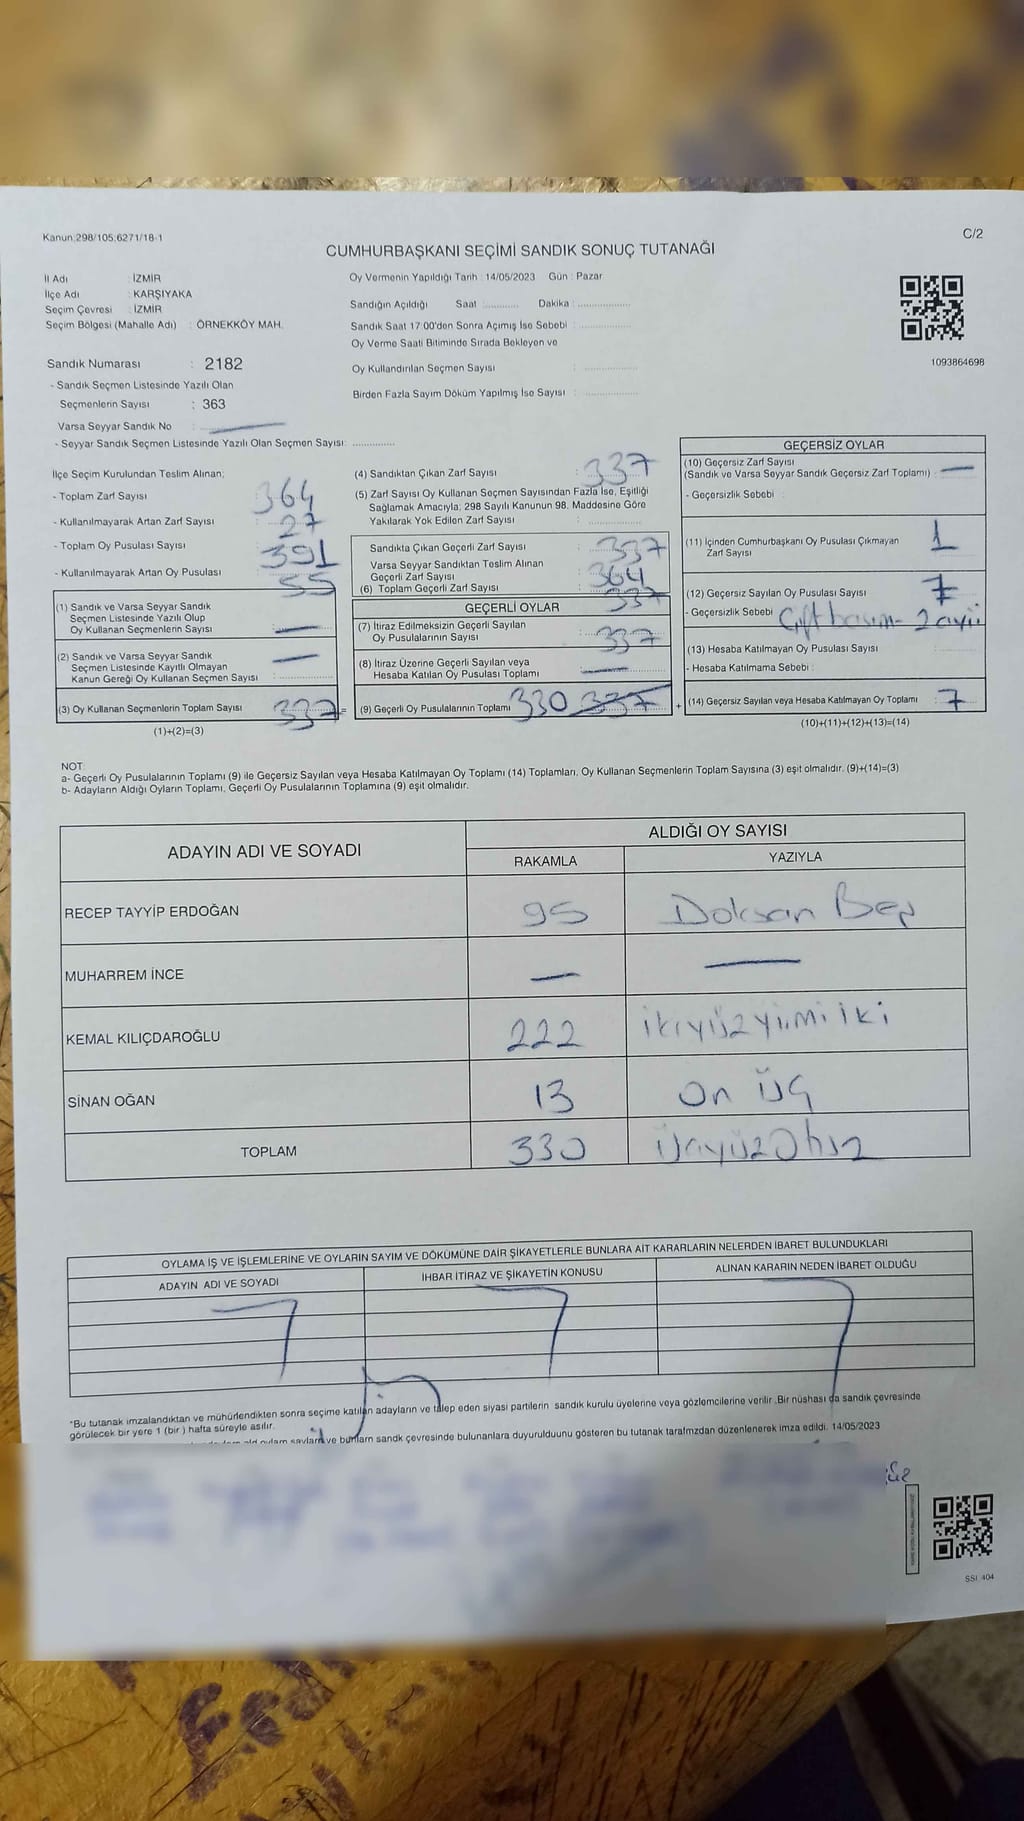 Kanun:298/105;6271/18-1
C/2
CUMHURBAŞKANI SEÇİMİ SANDIK SONUÇ TUTANAĞI
İl Adı : İZMİR
İlçe Adı : KARŞIYAKA
Seçim Çevresi : İZMİR
Seçim Bölgesi (Mahalle Adı) : ÖRNEKKÖY MAH.
Oy Vermenin Yapıldığı Tarih : 14/05/2023 Gün : Pazar
Sandığın Açıldığı Saat ........... Dakika : ................
Sandık Saat 17:00'den Sonra Açılmış İse Sebebi : ................
Oy Verme Saati Bitiminde Sırada Bekleyen ve
Oy Kullandırılan Seçmen Sayısı : ................
Birden Fazla Sayım Döküm Yapılmış İse Sayısı : ................
1093864698
Sandık Numarası : 2182
- Sandık Seçmen Listesinde Yazılı Olan
Seçmenlerin Sayısı : 363
Varsa Seyyar Sandık No : —
- Seyyar Sandık Seçmen Listesinde Yazılı Olan Seçmen Sayısı: .............
İlçe Seçim Kurulundan Teslim Alınan;
- Toplam Zarf Sayısı 364
- Kullanılmayarak Artan Zarf Sayısı : 27
- Toplam Oy Pusulası Sayısı 391
- Kullanılmayarak Artan Oy Pusulası : 55
(1) Sandık ve Varsa Seyyar Sandık
Seçmen Listesinde Yazılı Olup
Oy Kullanan Seçmenlerin Sayısı : —
(2) Sandık ve Varsa Seyyar Sandık
Seçmen Listesinde Kayıtlı Olmayan
Kanun Gereği Oy Kullanan Seçmen Sayısı : —
(3) Oy Kullanan Seçmenlerin Toplam Sayısı : 337 =
(1)+(2)=(3)
(4) Sandıktan Çıkan Zarf Sayısı : 337
(5) Zarf Sayısı Oy Kullanan Seçmen Sayısından Fazla İse, Eşitliği
Sağlamak Amacıyla, 298 Sayılı Kanunun 98. Maddesine Göre
Yakılarak Yok Edilen Zarf Sayısı : ................
Sandıkta Çıkan Geçerli Zarf Sayısı : 337
Varsa Seyyar Sandıktan Teslim Alınan
Geçerli Zarf Sayısı : 364
(6) Toplam Geçerli Zarf Sayısı : 337
GEÇERLİ OYLAR
(7) İtiraz Edilmeksizin Geçerli Sayılan
Oy Pusulalarının Sayısı : 337
(8) İtiraz Üzerine Geçerli Sayılan veya
Hesaba Katılan Oy Pusulası Toplamı : —
(9) Geçerli Oy Pusulalarının Toplamı 330 337 +
GEÇERSİZ OYLAR
(10) Geçersiz Zarf Sayısı
(Sandık ve Varsa Seyyar Sandık Geçersiz Zarf Toplamı) : —
- Geçersizlik Sebebi :
(11) İçinden Cumhurbaşkanı Oy Pusulası Çıkmayan
Zarf Sayısı : 1
(12) Geçersiz Sayılan Oy Pusulası Sayısı : 7
- Geçersizlik Sebebi :
(13) Hesaba Katılmayan Oy Pusulası Sayısı : ...........
- Hesaba Katılmama Sebebi :
(14) Geçersiz Sayılan veya Hesaba Katılmayan Oy Toplamı : 7
(10)+(11)+(12)+(13)=(14)
NOT:
a- Geçerli Oy Pusulalarının Toplamı (9) ile Geçersiz Sayılan veya Hesaba Katılmayan Oy Toplamı (14) Toplamları, Oy Kullanan Seçmenlerin Toplam Sayısına (3) eşit olmalıdır. (9)+(14)=(3)
b- Adayların Aldığı Oyların Toplamı, Geçerli Oy Pusulalarının Toplamına (9) eşit olmalıdır.
ADAYIN ADI VE SOYADI
ALDIĞI OY SAYISI
RAKAMLA YAZIYLA
RECEP TAYYİP ERDOĞAN 95 Doksan Beş
MUHARREM İNCE — —
KEMAL KILIÇDAROĞLU 222 ikiyüzyirmi iki
SİNAN OĞAN 13 On üç
TOPLAM 330 üçyüzOtuz
OYLAMA İŞ VE İŞLEMLERİNE VE OYLARIN SAYIM VE DÖKÜMÜNE DAİR ŞİKAYETLERLE BUNLARA AİT KARARLARIN NELERDEN İBARET BULUNDUKLARI
ADAYIN ADI VE SOYADI İHBAR İTİRAZ VE ŞİKAYETİN KONUSU ALINAN KARARIN NEDEN İBARET OLDUĞU
*Bu tutanak imzalandıktan ve mühürlendikten sonra seçime katılan adayların ve talep eden siyasi partilerin sandık kurulu üyelerine veya gözlemcilerine verilir .Bir nüshası da sandık çevresinde
görülecek bir yere 1 (bir ) hafta süreyle asılır.
ve bunların sandk çevresinde bulunanlara duyurulduunu gösteren bu tutanak tarafmzdan düzenlenerek imza edildi. 14/05/2023
SSI 404